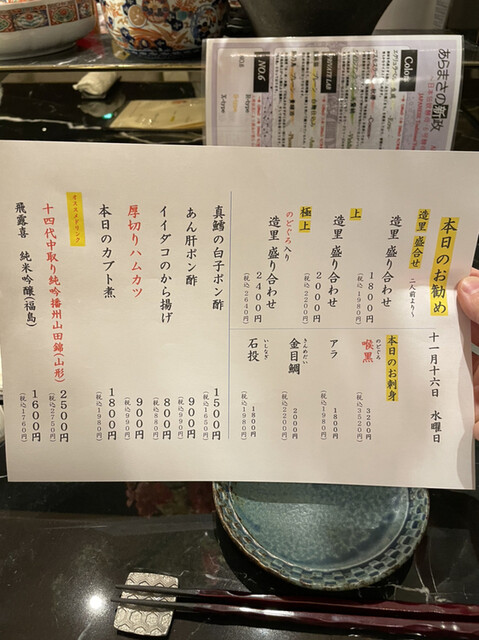 本日のお勧め
十一月十六日 水曜日
造里 盛合せ 二人前より
造里 盛り合わせ 1800円
(税込1980円)
上
造里 盛り合わせ 2000円
(税込2200円)
極上
のどぐろ入り
造里 盛り合わせ 2400円
(税込2640円)
本日のお刺身
のどぐろ
喉黒 3200円
(税込3520円)
アラ 1800円
(税込1980円)
きんめだい
金目鯛 2000円
(税込2200円)
いしなぎ
石投 1800円
(税込1980円)
真鱈の白子ポン酢 1500円
(税込1650円)
あん肝ポン酢 900円
(税込990円)
イイダコのから揚げ 800円
(税込880円)
厚切りハムカツ 900円
(税込990円)
本日のカブト煮 1800円
(税込1980円)
オススメドリンク
十四代中取り純吟播州山田錦(山形) 2500円
(税込2750円)
飛露喜 純米吟醸(福島) 1600円
(税込1760円)
あらまさの新政
Colors
NO.6